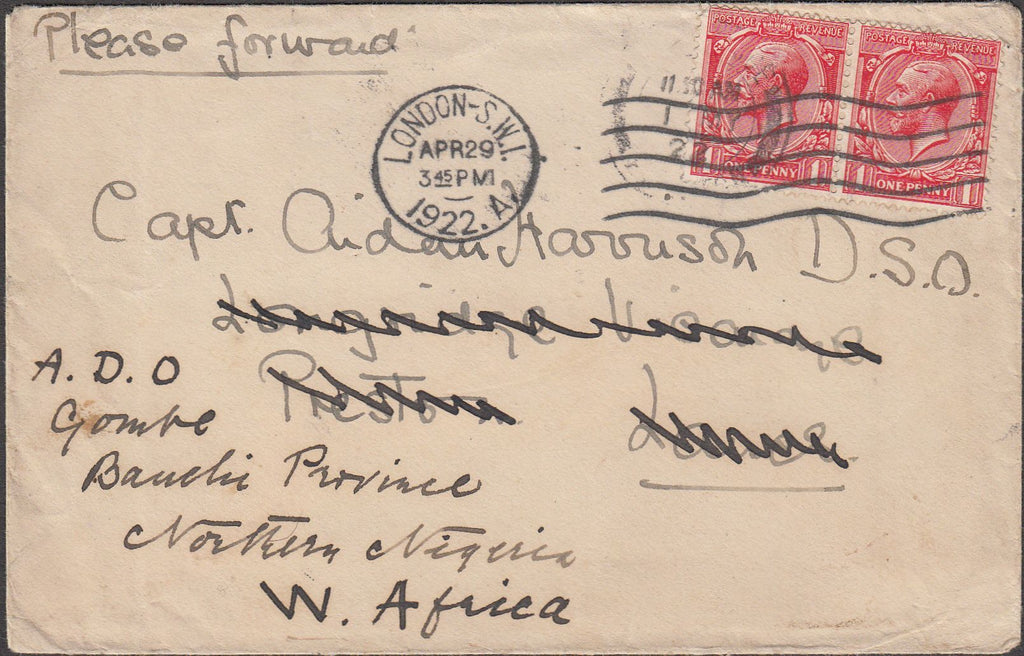 Please forward
POSTAGE REVENUE
POSTAGE REVENUE
1 ONE PENNY 1
1 ONE PENNY 1
11.30 AM
LONDON-S.W.1.
APR 29
3 45 PM
1922. A2
Capt. Aidan Harrison D.S.O.
Longridge Vicarage
Preston Lancs.
A. D. O
Gombe
Bauchi Province
Northern Nigeria
W. Africa